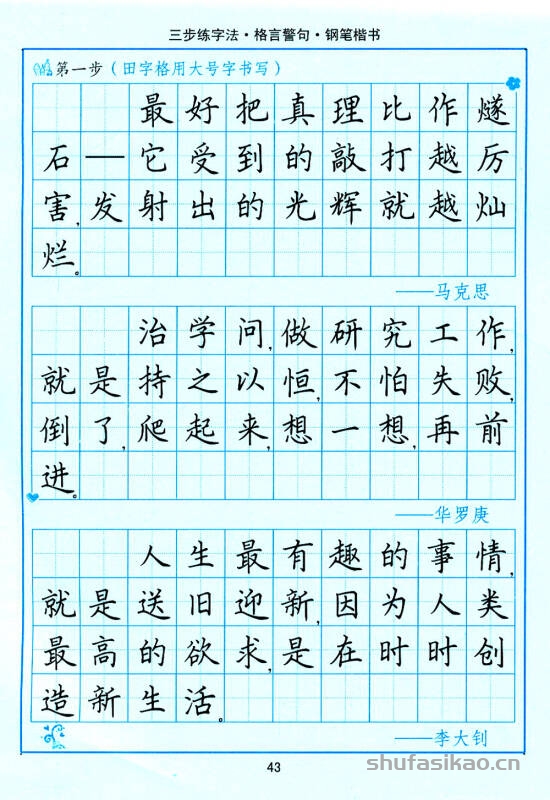 三步练字法·格言警句·钢笔楷书
第一步（田字格用大号字书写）
最好把真理比作燧
石——它受到的敲打越厉
害,发射出的光辉就越灿
烂。
——马克思
治学问,做研究工作,
就是持之以恒,不怕失败,
倒了,爬起来,想一想,再前
进。
——华罗庚
人生最有趣的事情,
就是送旧迎新,因为人类
最高的欲求,是在时时创
造新生活。
——李大钊
43
shufasikao.cn